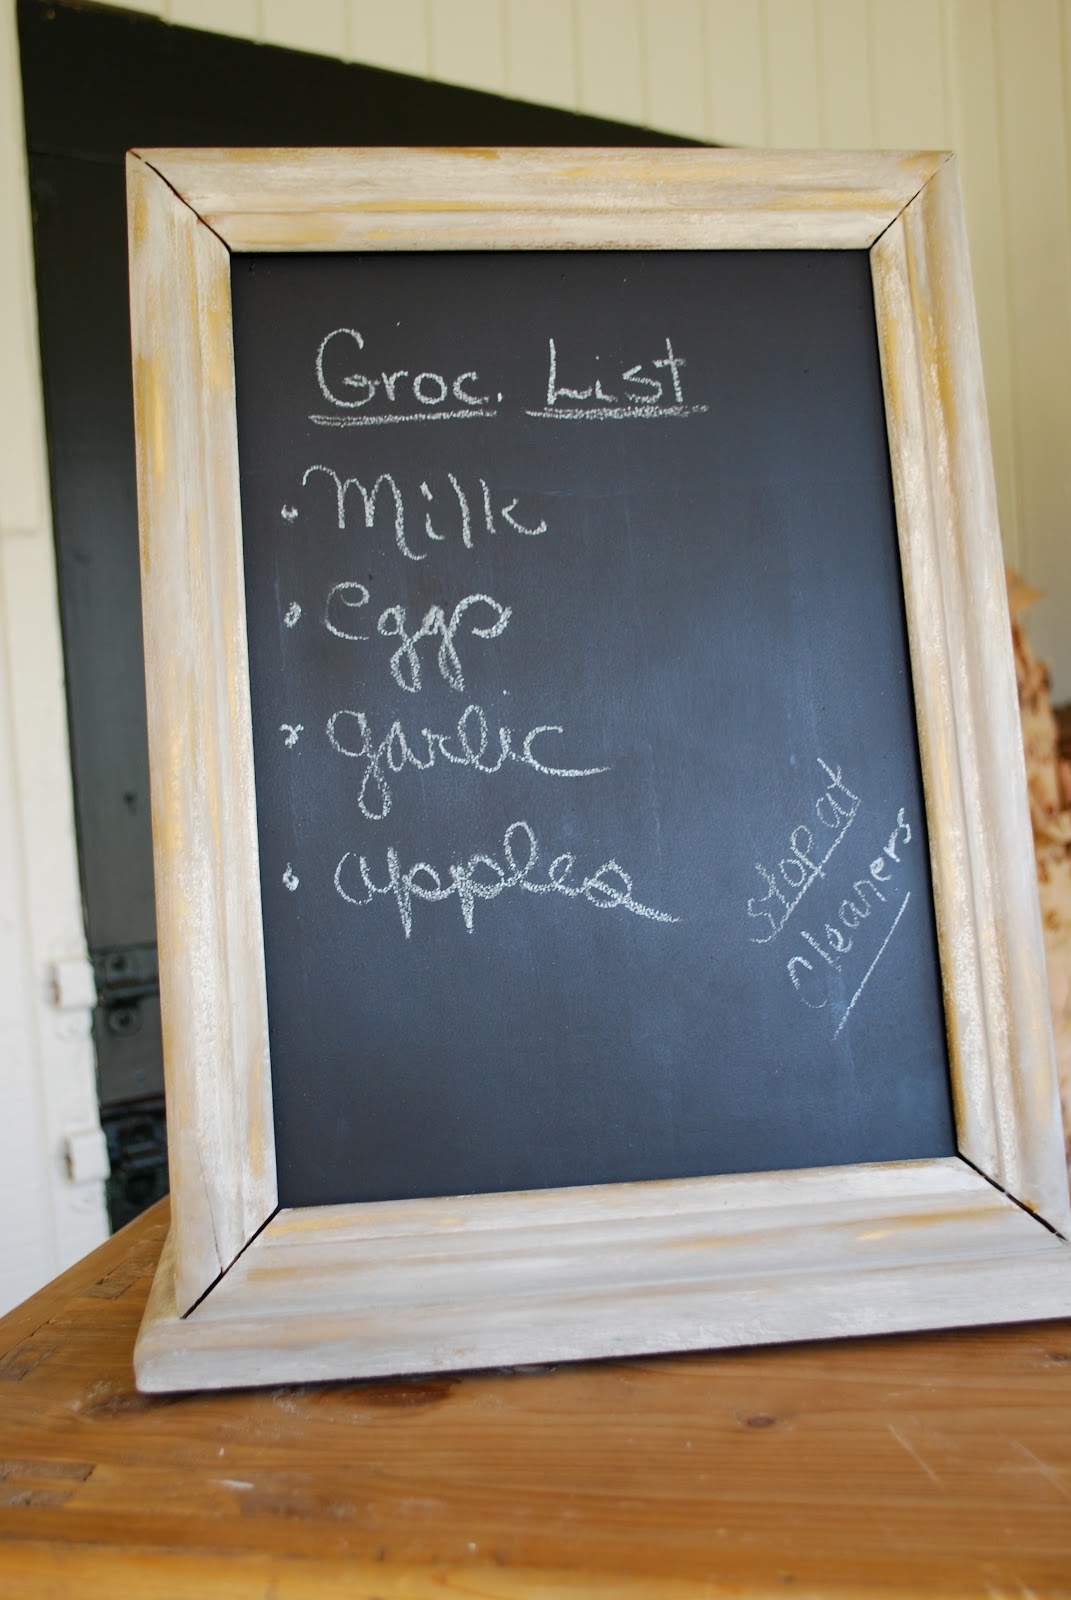 Groc. List
• Milk
• eggs
• garlic
• apples
Stop at
cleaners